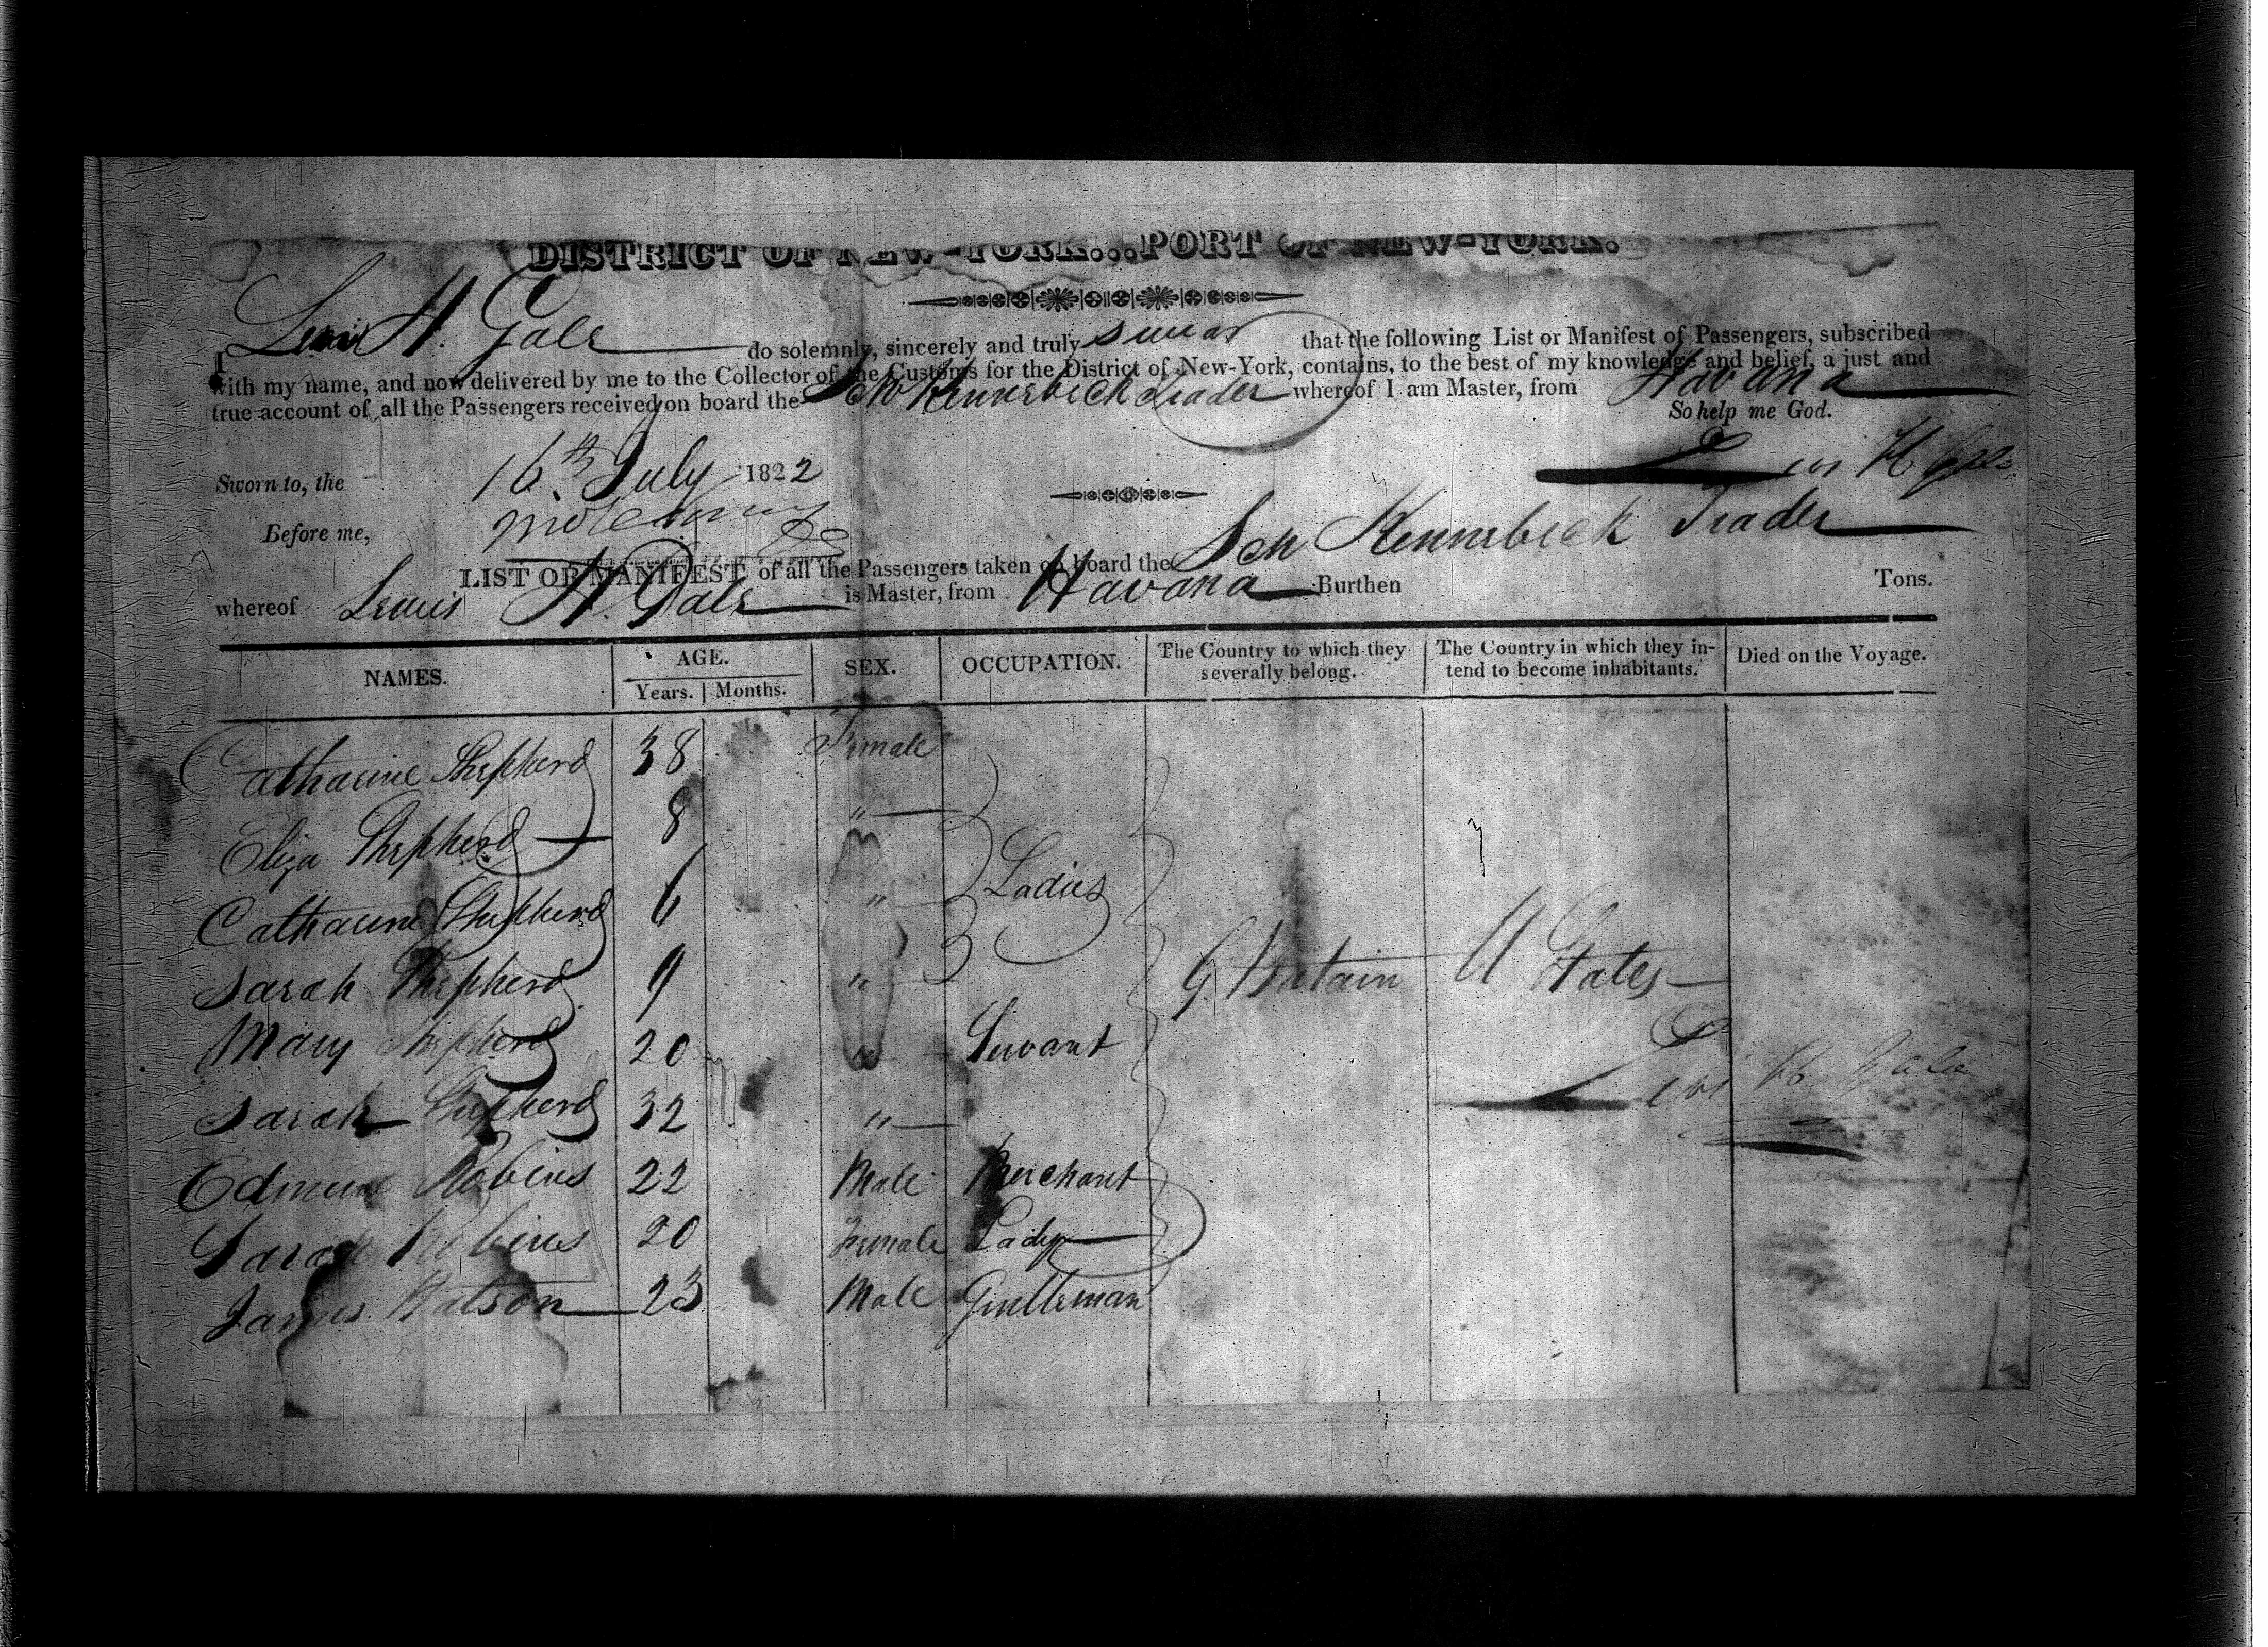 DISTRICT OF NEW-YORK...PORT OF NEW-YORK.
I Lewis H. Gale do solemnly, sincerely and truly swear that the following List or Manifest of Passengers, subscribed
with my name, and now delivered by me to the Collector of the Customs for the District of New-York, contains, to the best of my knowledge and belief, a just and
true account of all the Passengers received on board the Sch Kennebeck Trader whereof I am Master, from Havana
So help me God.
Sworn to, the 16th July 1822
H Gale
Before me,
LIST OR MANIFEST of all the Passengers taken on board the Sch Kennebeck Trader
whereof Lewis H. Gale is Master, from Havana Burthen Tons.
NAMES. AGE. Years. Months. SEX. OCCUPATION. The Country to which they severally belong. The Country in which they intend to become inhabitants. Died on the Voyage.
Catharine Shepherd 38 Female
Eliza Shepherd 8 "
Catharine Shepherd 6 " Ladies
Sarah Shepherd 9 " G. Britain U States
Mary Shepherd 20 " Servant
Sarah Shepherd 32 " H. Gale
Edmund Robins 22 Male Merchant
Sarah Robins 20 Female Lady
James Watson 23 Male Gentleman